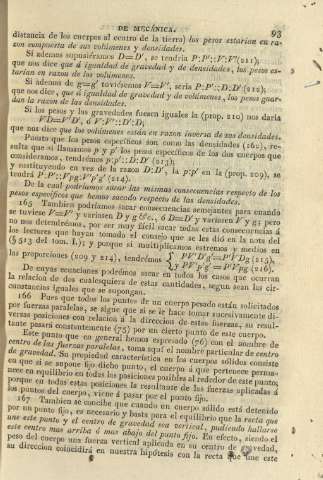 DE MECÁNICA. 93
distancia de los cuerpos al centro de la tierra) los pesos estarian en ra-
zon compuesta de sus volúmenes y densidades.
Si ademas supusiéramos D=D', se tendria P:P'::V:V'(211),
que nos dice que á igualdad de gravedad y de densidades, los pesos es-
tarian en razon de los volúmenes.
Si ademas de g=g' tuviésemos V=V', seria P:P'::D:D'(212);
que nos dice, que á igualdad de gravedad y de volúmenes, los pesos guar-
dan la razon de las densidades.
Si los pesos y las gravedades fuesen iguales la (prop. 210) nos daria
VD=V'D', ó V:V'::D':D;
que nos dice que los volúmenes están en razon inversa de sus densidades.
Puesto que los pesos específicos son como las densidades (162), re-
sulta que si llamamos p y p' los pesos específicos de los dos cuerpos que
consideramos, tendrémos p:p'::D:D' (213);
y sustituyendo en vez de la razon D:D', la p:p' en la (prop. 209), se
tendrá P:P'::Vpg:V'p'g' (214).
De la cual podríamos sacar las mismas consecuencias respecto de los
pesos específicos que hemos sacado respecto de las densidades.
165 Tambien podríamos sacar consecuencias semejantes para cuando
se tuviese V=V' y variasen D y g &c., ó D=D' y variasen V y g; pero
no nos detenemos, por ser muy fácil sacar todas estas consecuencias á
los lectores que hayan tomado el consejo que se les dió en la nota del
(§ 513 del tom. I.); y porque si multiplicamos extremos y medios en
las proporciones (209 y 214), tendrémos { PV'D'g'=P'VDg (215),
y PV'p'g'=P'Vpg (216).
De cuyas ecuaciones podrémos sacar en todos los casos que ocurran
la relacion de cualesquiera de estas cantidades, segun sean las cir-
cunstancias iguales que se supongan.
166 Pues que todos los puntos de un cuerpo pesado están solicitados
por fuerzas paralelas, se sigue que si se le hace tomar sucesivamente di-
versas posiciones con relacion á la direccion de estas fuerzas, su resul-
tante pasará constantemente (75) por un cierto punto de este cuerpo.
Este punto que en general hemos expresado (76) con el nombre de
centro de las fuerzas paralelas, toma aquí el nombre particular de centro
de gravedad. Su propiedad característica en los cuerpos sólidos consiste
en que si se supone fijo dicho punto, el cuerpo á que pertenece perma-
nece en equilibrio en todas las posiciones posibles al rededor de este punto;
porque en todas estas posiciones la resultante de las fuerzas aplicadas á
los puntos del cuerpo, viene á pasar por el punto fijo.
167 Tambien se concibe que cuando en cuerpo sólido está detenido
por un punto fijo, es necesario y basta para el equilibrio que la recta que
une este punto y el centro de gravedad sea vertical, pudiendo hallarse
este centro mas arriba ó mas abajo del punto fijo. En efecto, siendo el
peso del cuerpo una fuerza vertical aplicada en su centro de gravedad,
su direccion coincidirá en nuestra hipótesis con la recta que une este